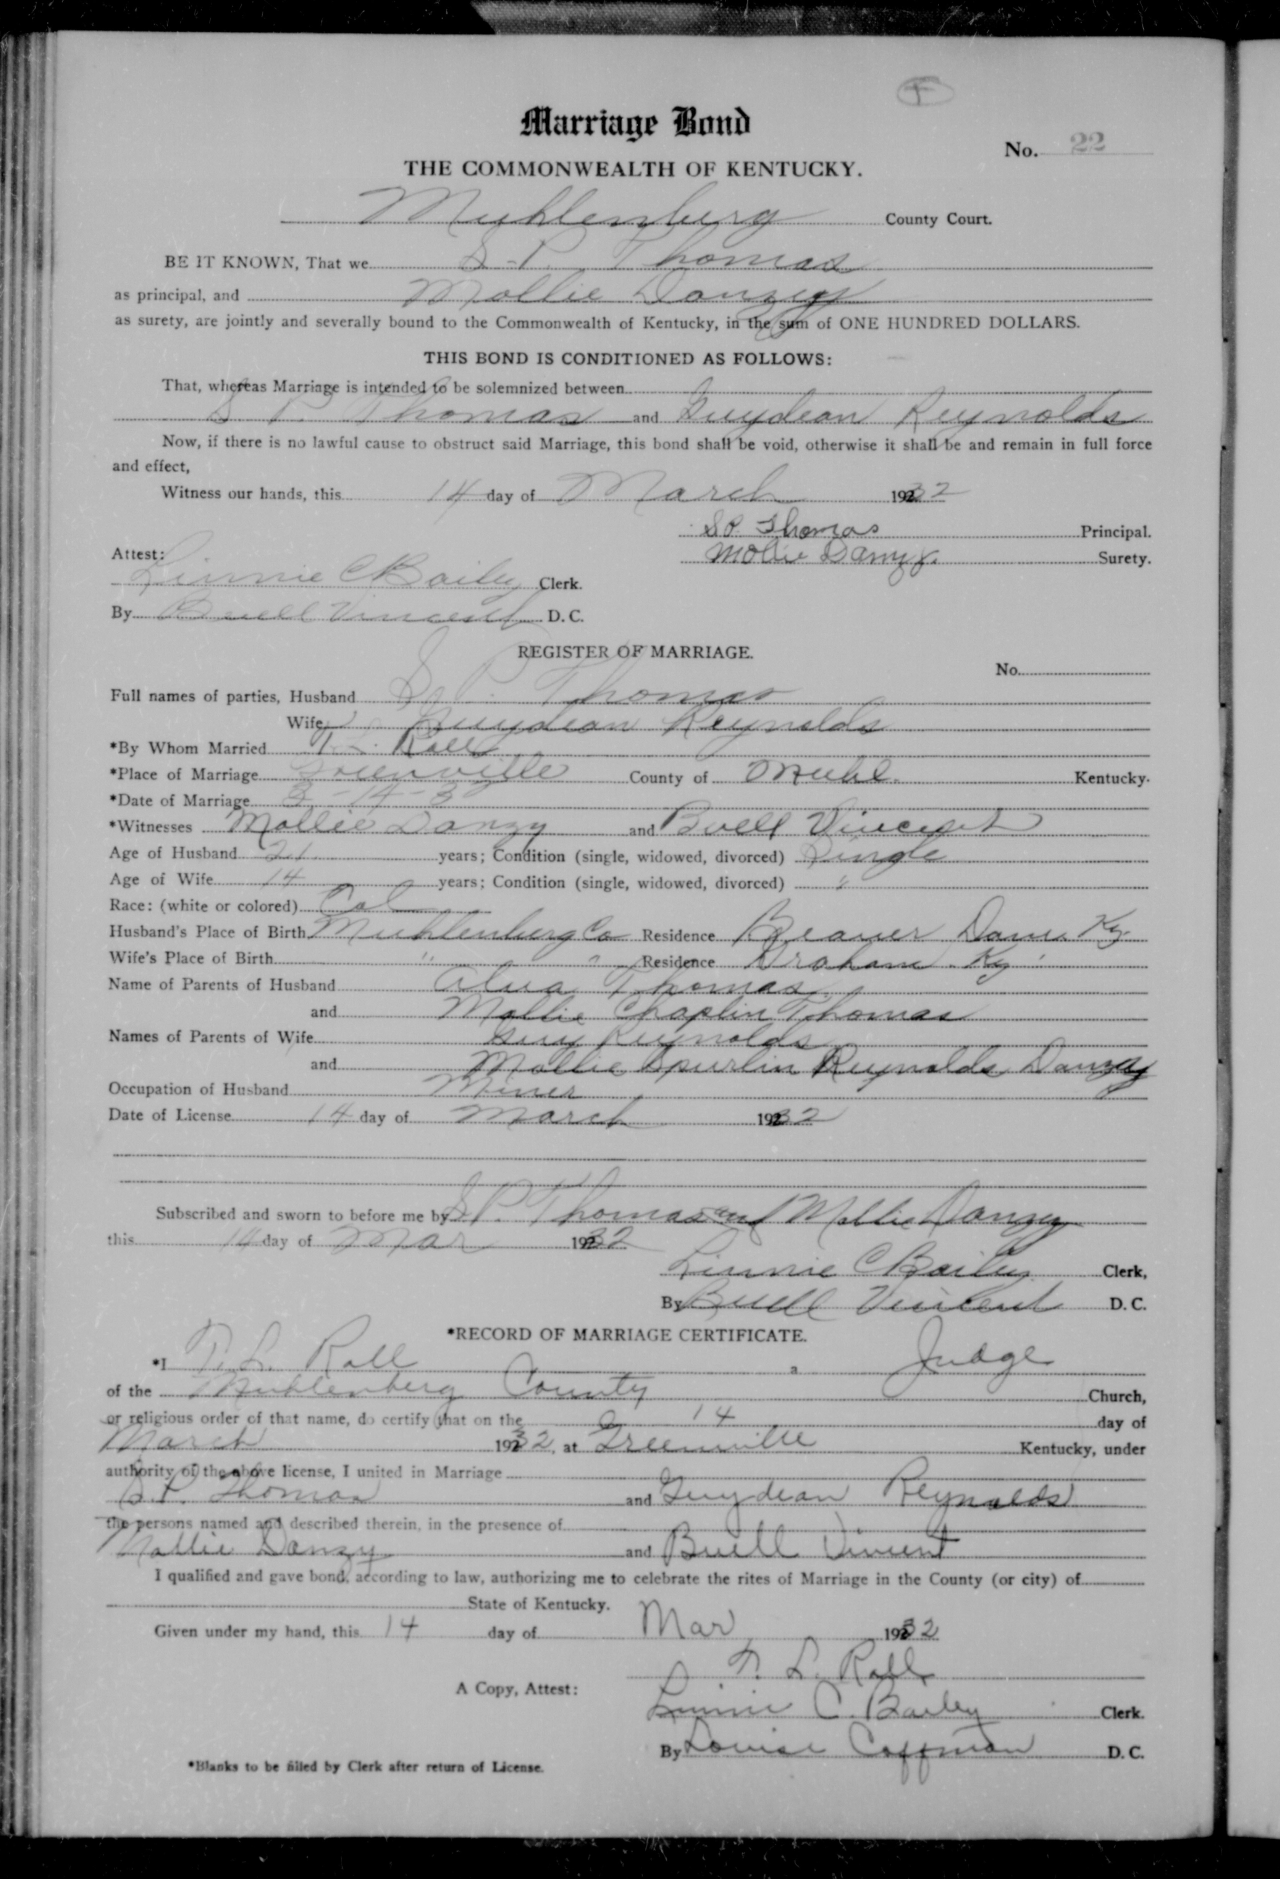 F
Marriage Bond
No. 22
THE COMMONWEALTH OF KENTUCKY.
Muhlenberg County Court.
BE IT KNOWN, That we S-P. Thomas
as principal, and Mollie Danzy
as surety, are jointly and severally bound to the Commonwealth of Kentucky, in the sum of ONE HUNDRED DOLLARS.
THIS BOND IS CONDITIONED AS FOLLOWS:
That, whereas Marriage is intended to be solemnized between
S P. Thomas and Guydean Reynolds
Now, if there is no lawful cause to obstruct said Marriage, this bond shall be void, otherwise it shall be and remain in full force
and effect,
Witness our hands, this 14 day of March 1932
S P. Thomas Principal.
Attest: Mollie Danzy. Surety.
Linnie C Bailey Clerk.
By Buell Vincent D. C.
REGISTER OF MARRIAGE.
No.
Full names of parties, Husband S. P. Thomas
Wife Guydean Reynolds
*By Whom Married T. L. Roll
*Place of Marriage Greenville County of Muhl. Kentucky.
*Date of Marriage 3-14-3
*Witnesses Mollie Danzy and Buell Vincent
Age of Husband 21 years; Condition (single, widowed, divorced) Single
Age of Wife 14 years; Condition (single, widowed, divorced) "
Race: (white or colored) Col
Husband's Place of Birth Muhlenberg Co Residence Beaver Dam Ky.
Wife's Place of Birth " " Residence Graham Ky.
Name of Parents of Husband Alva Thomas
and Mollie Chaplin Thomas
Names of Parents of Wife Guy Reynolds
and Mollie Spurlin Reynolds Danzy
Occupation of Husband Miner
Date of License 14 day of March 1932
Subscribed and sworn to before me by S P. Thomas and Mollie Danzy
this 14 day of Mar 1932
Linnie C Bailey Clerk,
By Buell Vincent D. C.
*RECORD OF MARRIAGE CERTIFICATE.
*I T. L. Roll a Judge
of the Muhlenberg County Church,
or religious order of that name, do certify that on the 14 day of
March 1932, at Greenville Kentucky, under
authority of the above license, I united in Marriage
S. P. Thomas and Guydean Reynolds
the persons named and described therein, in the presence of
Mollie Danzy and Buell Vincent
I qualified and gave bond, according to law, authorizing me to celebrate the rites of Marriage in the County (or city) of
State of Kentucky.
Given under my hand, this 14 day of Mar 1932
T. L. Roll
A Copy, Attest:
Linnie C. Bailey Clerk.
By Louise Coffman D. C.
*Blanks to be filled by Clerk after return of License.